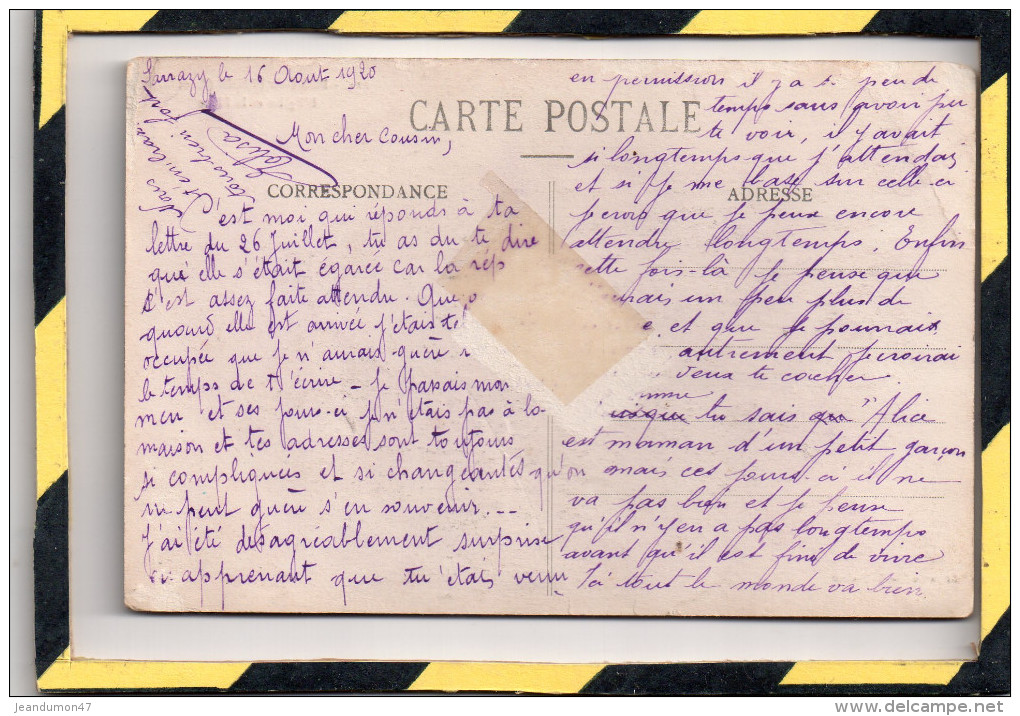 le 16 Août 1920
CARTE POSTALE
Mon cher Cousin,
CORRESPONDANCE
C'est moi qui réponds à ta
lettre du 26 Juillet, tu as du te dire
qu'elle s'était égarée car la rép
s'est assez faite attendre. Que
quand elle est arrivée j'étais te
occupée que je n'aurais guère
le temps de t'écrire – Je passais mon
et ses jours-ci je n'étais pas à la
maison et tes adresses sont toujours
si compliquées et si changeantes qu'on
ne peut guère s'en souvenir...
J'ai été désagréablement surprise
en apprenant que tu étais venu
en permission il y a si peu de
temps sans avoir pu
te voir, il y avait
si longtemps que j'attendais
et si je me base sur celle-ci
ADRESSE
je crois que je peux encore
attendre longtemps. Enfin
cette fois-là je pense que
un peu plus de
et que je pourrais
autrement je croirai
veux te cacher
tu sais qu' Alice
est maman d'un petit garçon
mais ces jours-ci il ne
va pas bien et je pense
qu'il n'y en a pas longtemps
avant qu'il est fini de vivre
Ici tout le monde va bien
jeandumon47
www.delcampe.net